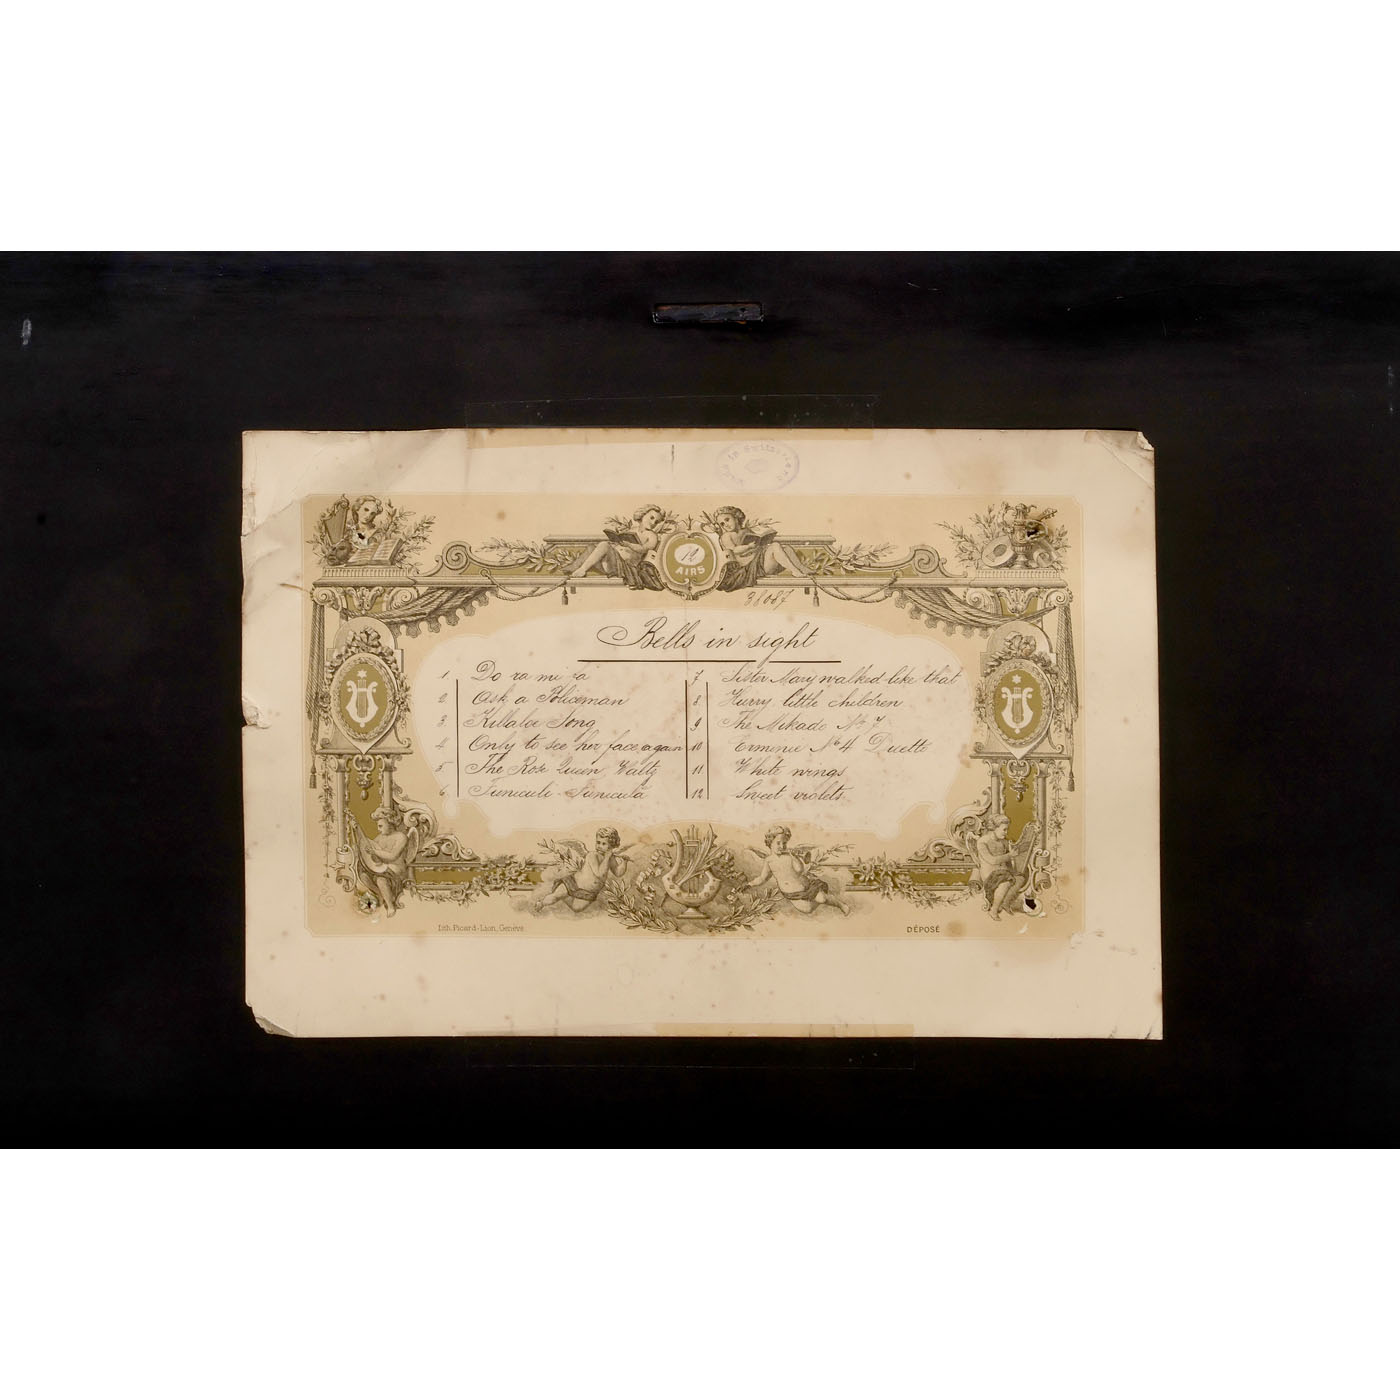 in Switzerland
12
AIRS
38087
Bells in sight
1 Do ra mi fa
2 Ask a Policeman
3. Killaloe Song
4 Only to see her face again
5 The Rose Queen, Waltz
6 Funiculi-Funiculà
7 Sister Mary walked like that
8 Hurry little children
9 The Mikado No 7
10 Erminie No 4 Duetto
11 White wings
12 Sweet violets.
Lith. Picard-Lion, Genève.
DÉPOSÉ